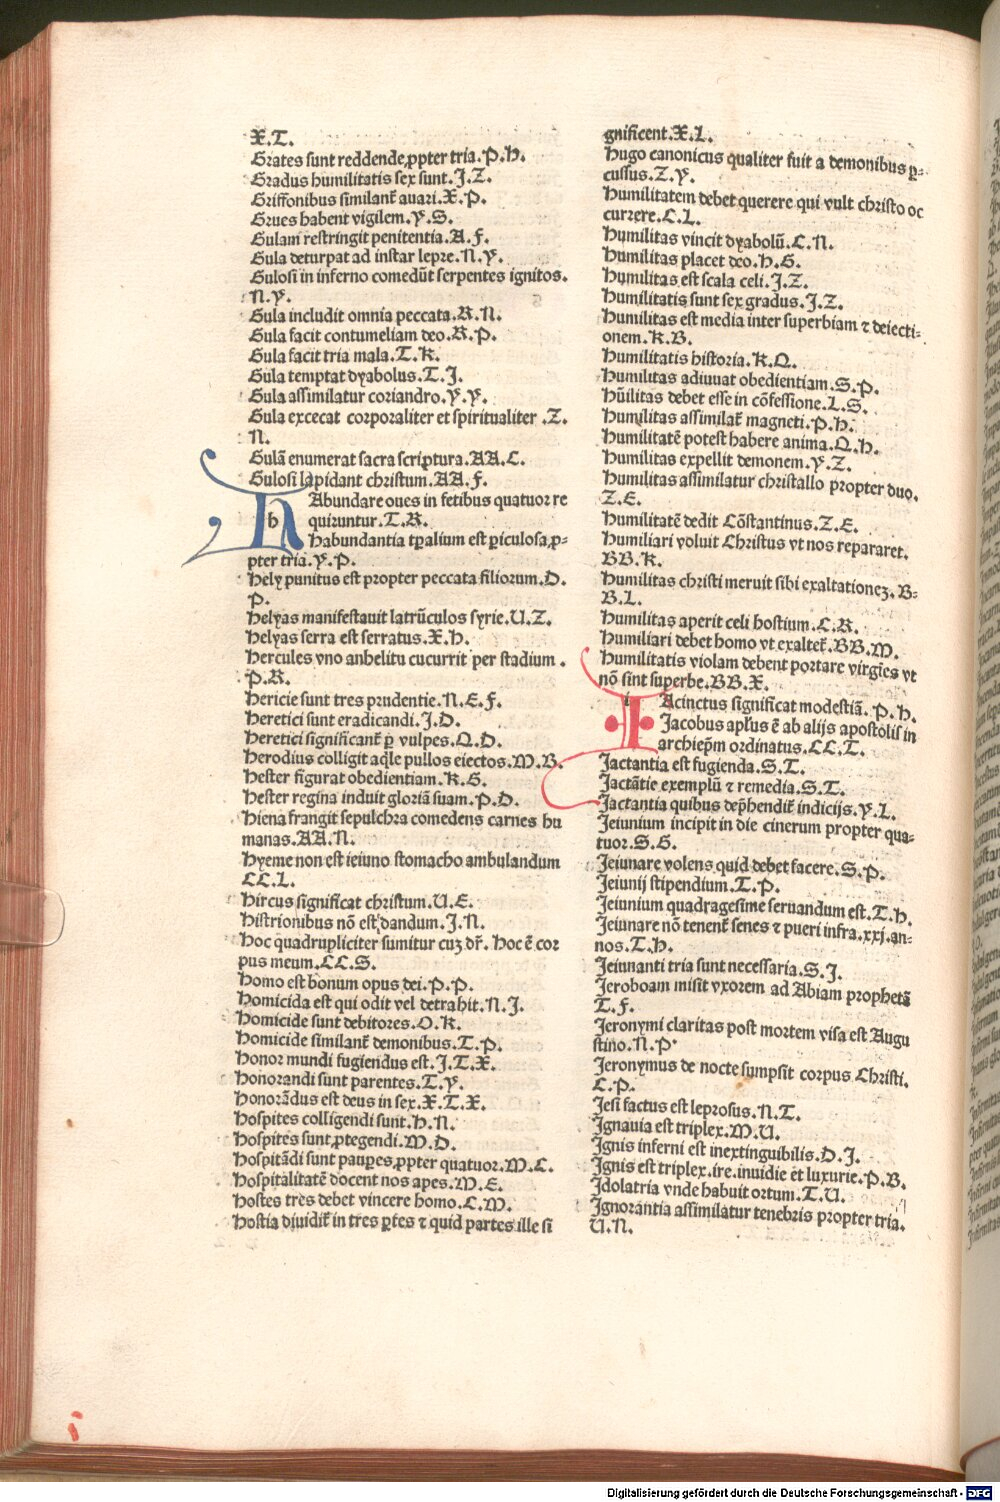 X.T.
Grates sunt reddende ꝓpter tria.P.H.
Gradus humilitatis sex sunt.J.Z.
Griffonibus similant᷑ auari.X.P.
Grues habent vigilem.Y.S.
Gulam restringit penitentia.A.F.
Gula deturpat ad instar lepre.N.Y.
Gulosi in inferno comedūt serpentes ignitos.
N.Y.
Gula includit omnia peccata.R.N.
Gula facit contumeliam deo.R.P.
Gula facit tria mala.T.K.
Gula temptat dyabolus.T.J.
Gula assimilatur coriandro.Y.Y.
Gula excecat corporaliter et spiritualiter .Z.
N.
Gulā enumerat sacra scriptura.AA.C.
Gulosi lapidant christum.AA.F.
HAbundare oues in fetibus quatuor re
quiruntur.T.R.
Habundantia tp̄alium est ꝑiculosa ꝓ-
pter tria.Y.P.
Hely punitus est propter peccata filiorum.D.
P.
Helyas manifestauit latrūculos syrie.U.Z.
Helyas serra est serratus.X.H.
Hercules vno anhelitu cucurrit per stadium .
P.R.
Hericie sunt tres prudentie.N.E.F.
Heretici sunt eradicandi.J.D.
Heretici significant᷑ ꝑ vulpes.Q.D.
Herodius colligit aq̄le pullos eiectos.M.B.
Hester figurat obedientiam.K.G.
Hester regina induit gloriā suam.P.D.
Hiena frangit sepulchra comedens carnes hu
manas.AA.N.
Hyeme non est ieiuno stomacho ambulandum
CC.L.
Hircus significat christum.U.E.
Histrionibus nō est dandum.J.N.
Hoc quadrupliciter sumitur cuꝫ dr̄. Hoc ē cor
pus meum.CC.S.
Homo est bonum opus dei.P.P.
Homicida est qui odit vel detrahit.N.J.
Homicide sunt debitores.O.K.
Homicide similant᷑ demonibus.T.P.
Honor mundi fugiendus est.J.T.X.
Honorandi sunt parentes.T.Y.
Honorādus est deus in sex.X.T.X.
Hospites colligendi sunt.H.N.
Hospites sunt ꝓtegendi.M.D.
Hospitādi sunt pauꝑes ꝓpter quatuor.M.C.
Hospitalitatē docent nos apes.M.E.
Hostes tres debet vincere homo.C.M.
Hostia diuidit᷑ in tres ꝑtes ⁊ quid partes ille si
gnificent.X.L.
Hugo canonicus qualiter fuit a demonibus ꝑ-
cussus.Z.Y.
Humilitatem debet querere qui vult christo oc
currere.C.L.
Humilitas vincit dyabolū.C.N.
Humilitas placet deo.H.G.
Humilitas est scala celi.J.Z.
Humilitatis sunt sex gradus.J.Z.
Humilitas est media inter superbiam ⁊ deiecti-
onem.K.B.
Humilitatis historia.K.Q.
Humilitas adiuuat obedientiam.S.P.
Hūilitas debet esse in cōfessione.L.S.
Humilitas assimilat᷑ magneti.P.H.
Humilitatē potest habere anima.Q.H.
Humilitas expellit demonem.Y.Z.
Humilitas assimilatur christallo propter duo.
Z.E.
Humilitatē dedit Cōstantinus.Z.E.
Humiliari voluit Christus vt nos repararet.
BB.K.
Humilitas christi meruit sibi exaltationeꝫ. B-
B.L.
Humilitas aperit celi hostium.C.R.
Humiliari debet homo vt exaltet᷑.BB.M.
Humilitatis violam debent portare virgīes vt
nō sint superbe.BB.X.
IAcinctus significat modestiā. P.H.
Jacobus apl̄us ē ab alijs apostolis in
archiep̄m ordinatus.CC.T.
Jactantia est fugienda.S.T.
Jactātie exemplū ⁊ remedia.S.T.
Jactantia quibus dep̄hendit᷑ indicijs.Y.L.
Jeiunium incipit in die cinerum propter qua-
tuor.S.G.
Jeiunare volens quid debet facere.S.P.
Jeiunij stipendium.T.P.
Jeiunium quadragesime seruandum est.T.H.
Jeiunare nō tenent᷑ senes ⁊ pueri infra.xxj.an-
nos.T.H.
Jeiunanti tria sunt necessaria.S.J.
Jeroboam misit vxorem ad Abiam prophetā
T.F.
Jeronymi claritas post mortem visa est Augu
stino.N.P.
Jeronymus de nocte sumpsit corpus Christi.
C.P.
Jesi factus est leprosus.N.T.
Ignauia est triplex.M.U.
Ignis inferni est inextinguibilis.D.J.
Ignis est triplex.ire.inuidie et luxurie.P.B.
Idolatria vnde habuit ortum.T.U.
Ignorantia assimilatur tenebris propter tria.
U.N.
Digitalisierung gefördert durch die Deutsche Forschungsgemeinschaft - DFG